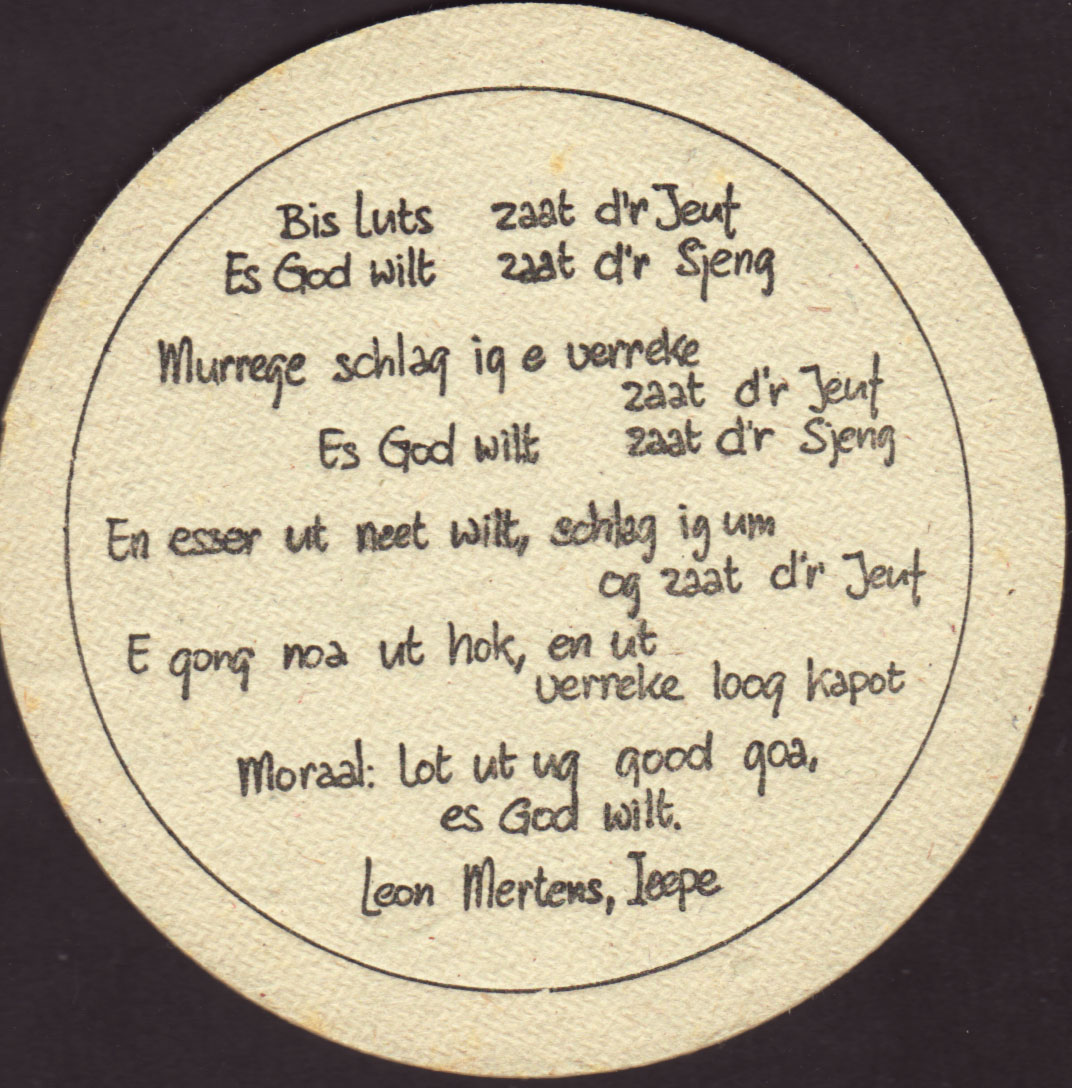 Bis luts zaat d'r Jeuf
Es God wilt zaat d'r Sjeng
Murrege schlag ig e verreke
zaat d'r Jeuf
Es God wilt zaat d'r Sjeng
En esser ut neet wilt, schlag ig um
og zaat d'r Jeuf
E gong noa ut hok, en ut
verreke loog kapot
Moraal: Lot ut ug good goa,
es God wilt.
Leon Mertens, Ieepe